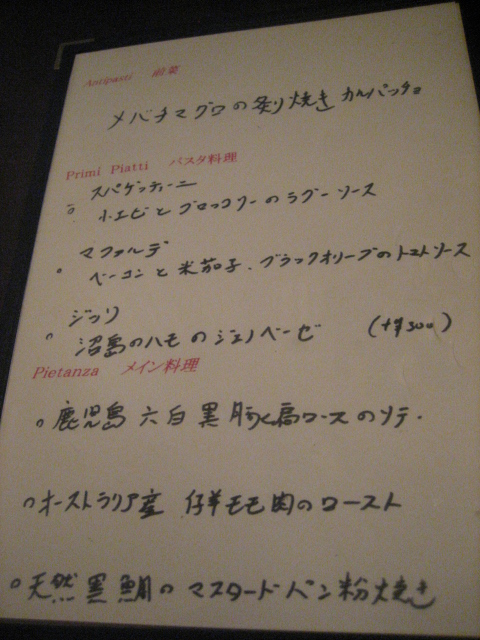 Antipasti 前菜
メバチマグロの炙り焼きカルパッチョ
Primi Piatti パスタ料理
スパゲッティーニ
○ 小エビとブロッコリーのラグーソース
マファルデ
○ ベーコンと米茄子、ブラックオリーブのトマトソース
ジリ
○ 沼島のハモのジェノベーゼ (+¥300)
Pietanza メイン料理
○ 鹿児島 六白黒豚肩ロースのソテー
○ オーストラリア産 仔羊モモ肉のロースト
○ 天然黒鯛のマスタードパン粉焼き